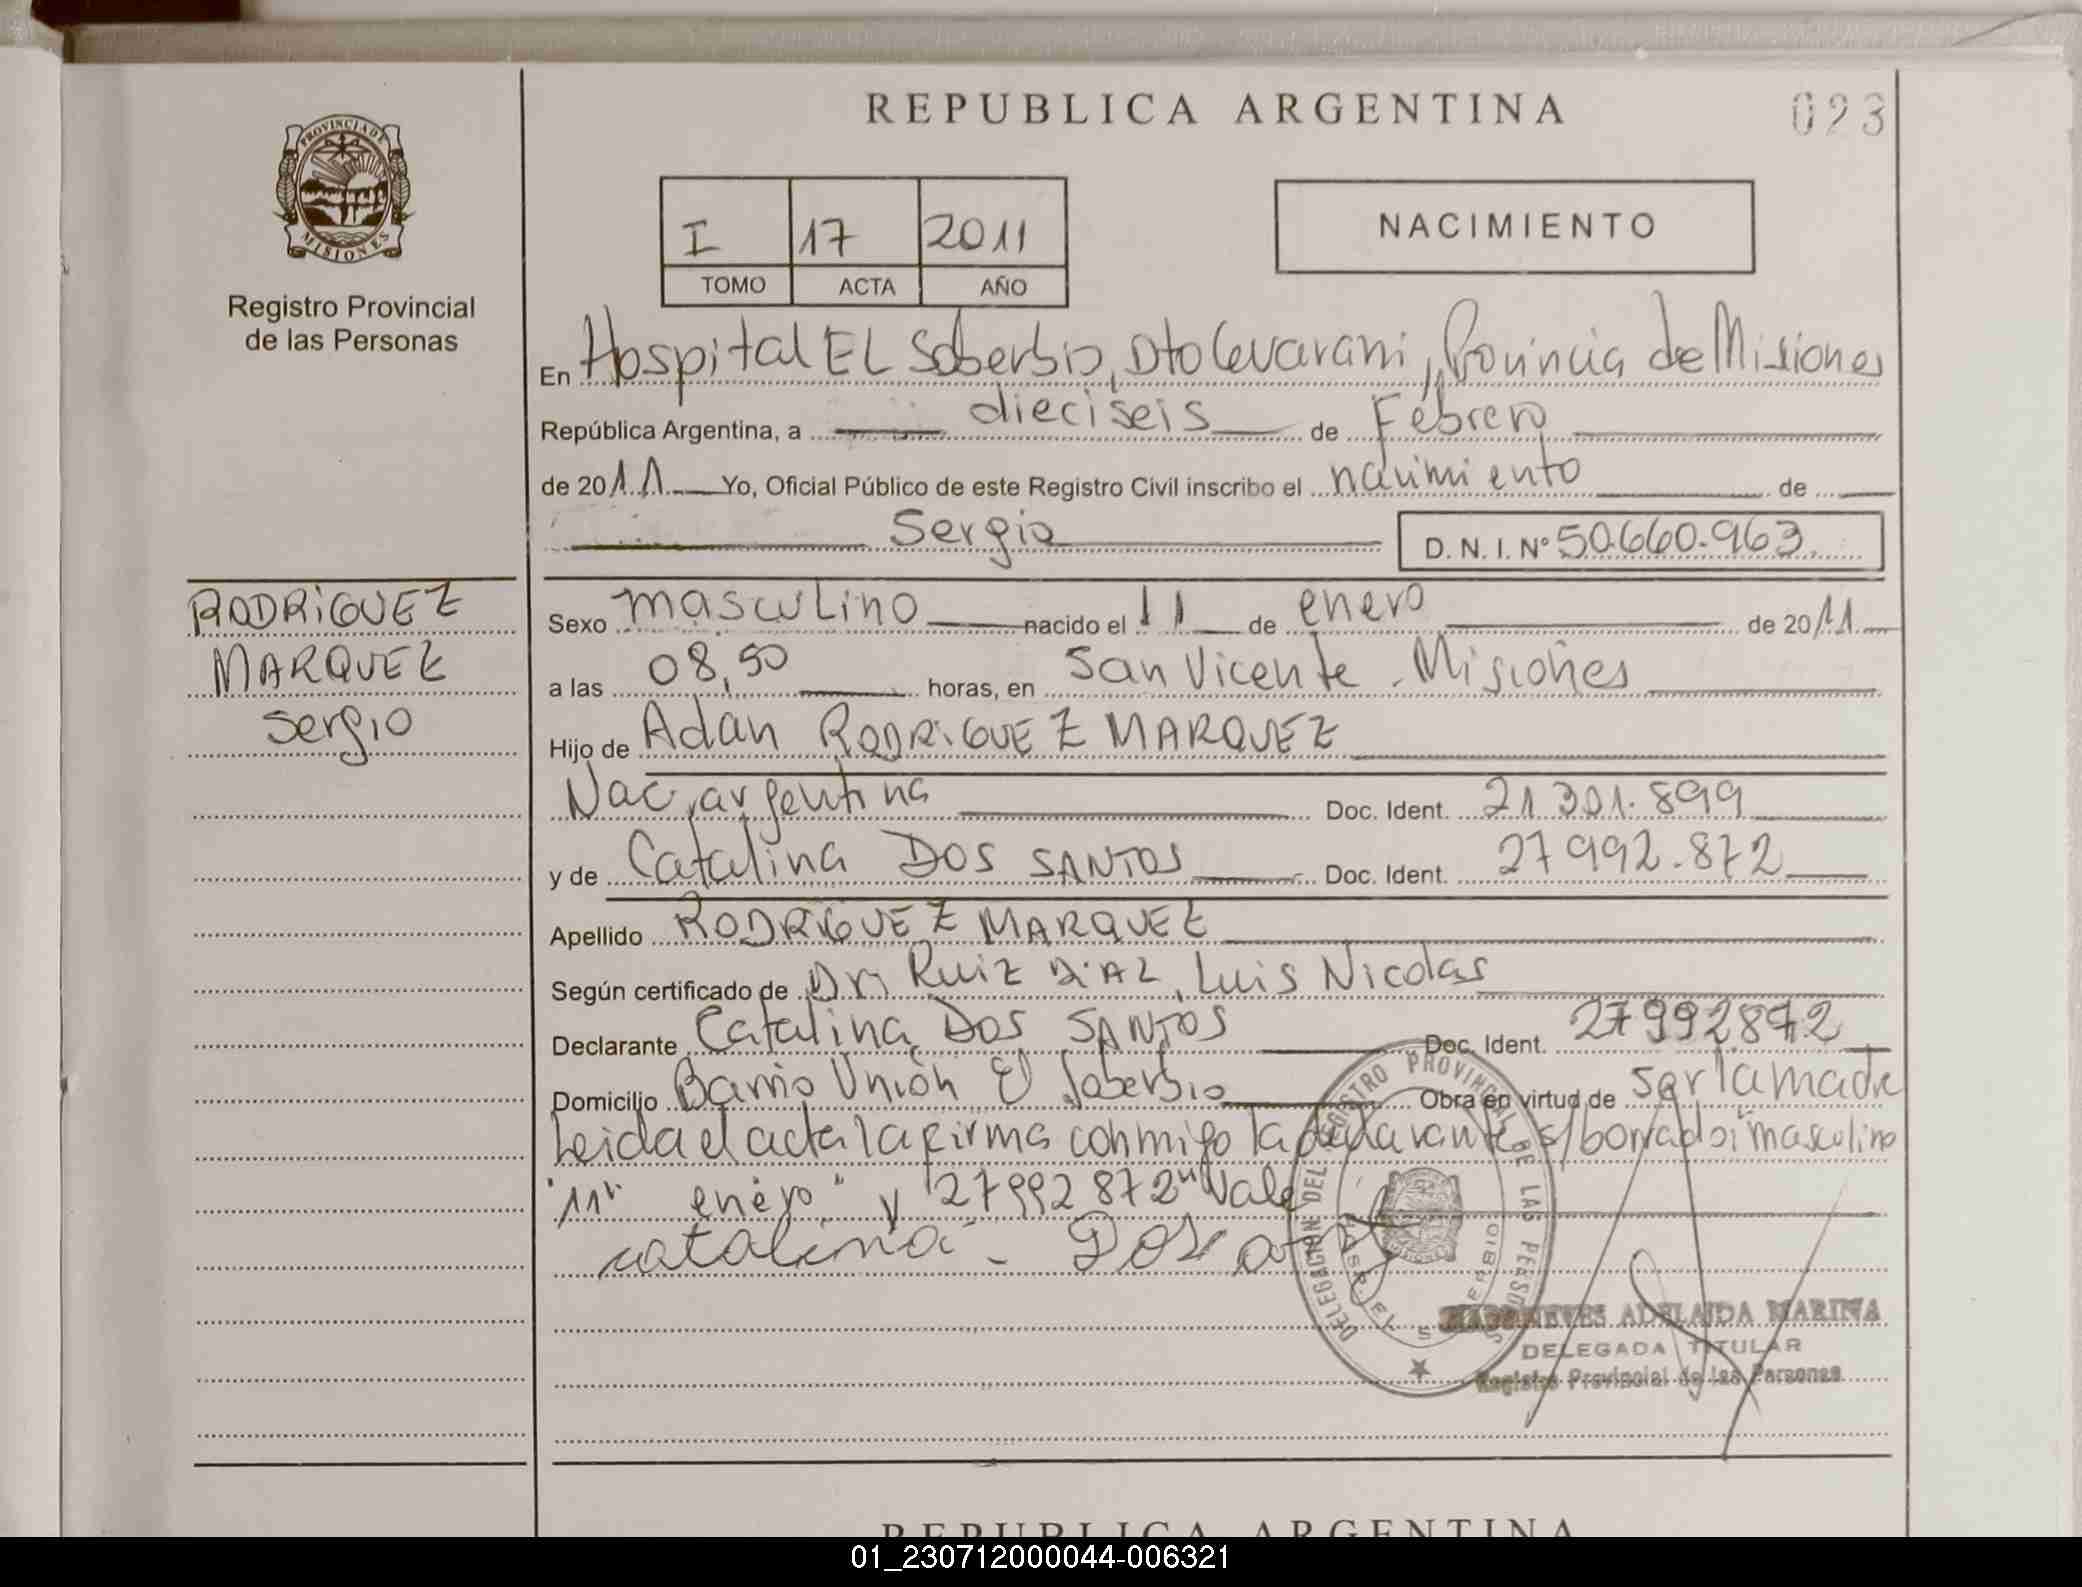 REPUBLICA ARGENTINA
023
PROVINCIA DE
MISIONES
Registro Provincial
de las Personas
I 17 2011
TOMO ACTA AÑO
NACIMIENTO
En Hospital EL Soberbio, Dto Guarani, Provincia de Misiones
República Argentina, a dieciseis de Febrero
de 2011 Yo, Oficial Público de este Registro Civil inscribo el nacimiento de
Sergio D. N. I. Nº 50.660.963
RODRIGUEZ
MARQUEZ
Sergio
Sexo masculino nacido el 11 de enero de 2011
a las 08,50 horas, en San Vicente - Misiones
Hijo de Adan RODRIGUEZ MARQUEZ
Nac. argentina Doc. Ident. 21.301.899
y de Catalina DOS SANTOS Doc. Ident. 27992.872
Apellido RODRIGUEZ MARQUEZ
Según certificado de Dr. Ruiz DiAZ, Luis Nicolas
Declarante Catalina DOS SANTOS Doc. Ident. 27992872
Domicilio Barrio Unión El Soberbio Obra en virtud de ser la madre
Leida el acta la firma conmigo la declarante s/borrado: masculino
"11" enero" y "27992872" Vale
catalina - Dos
DELEGACION DEL REGISTRO PROVINCIAL DE LAS PERSONAS
NIEVES ADELAIDA MARINA
DELEGADA TITULAR
Registro Provincial de las Personas
REPUBLICA ARGENTINA
01_230712000044-006321